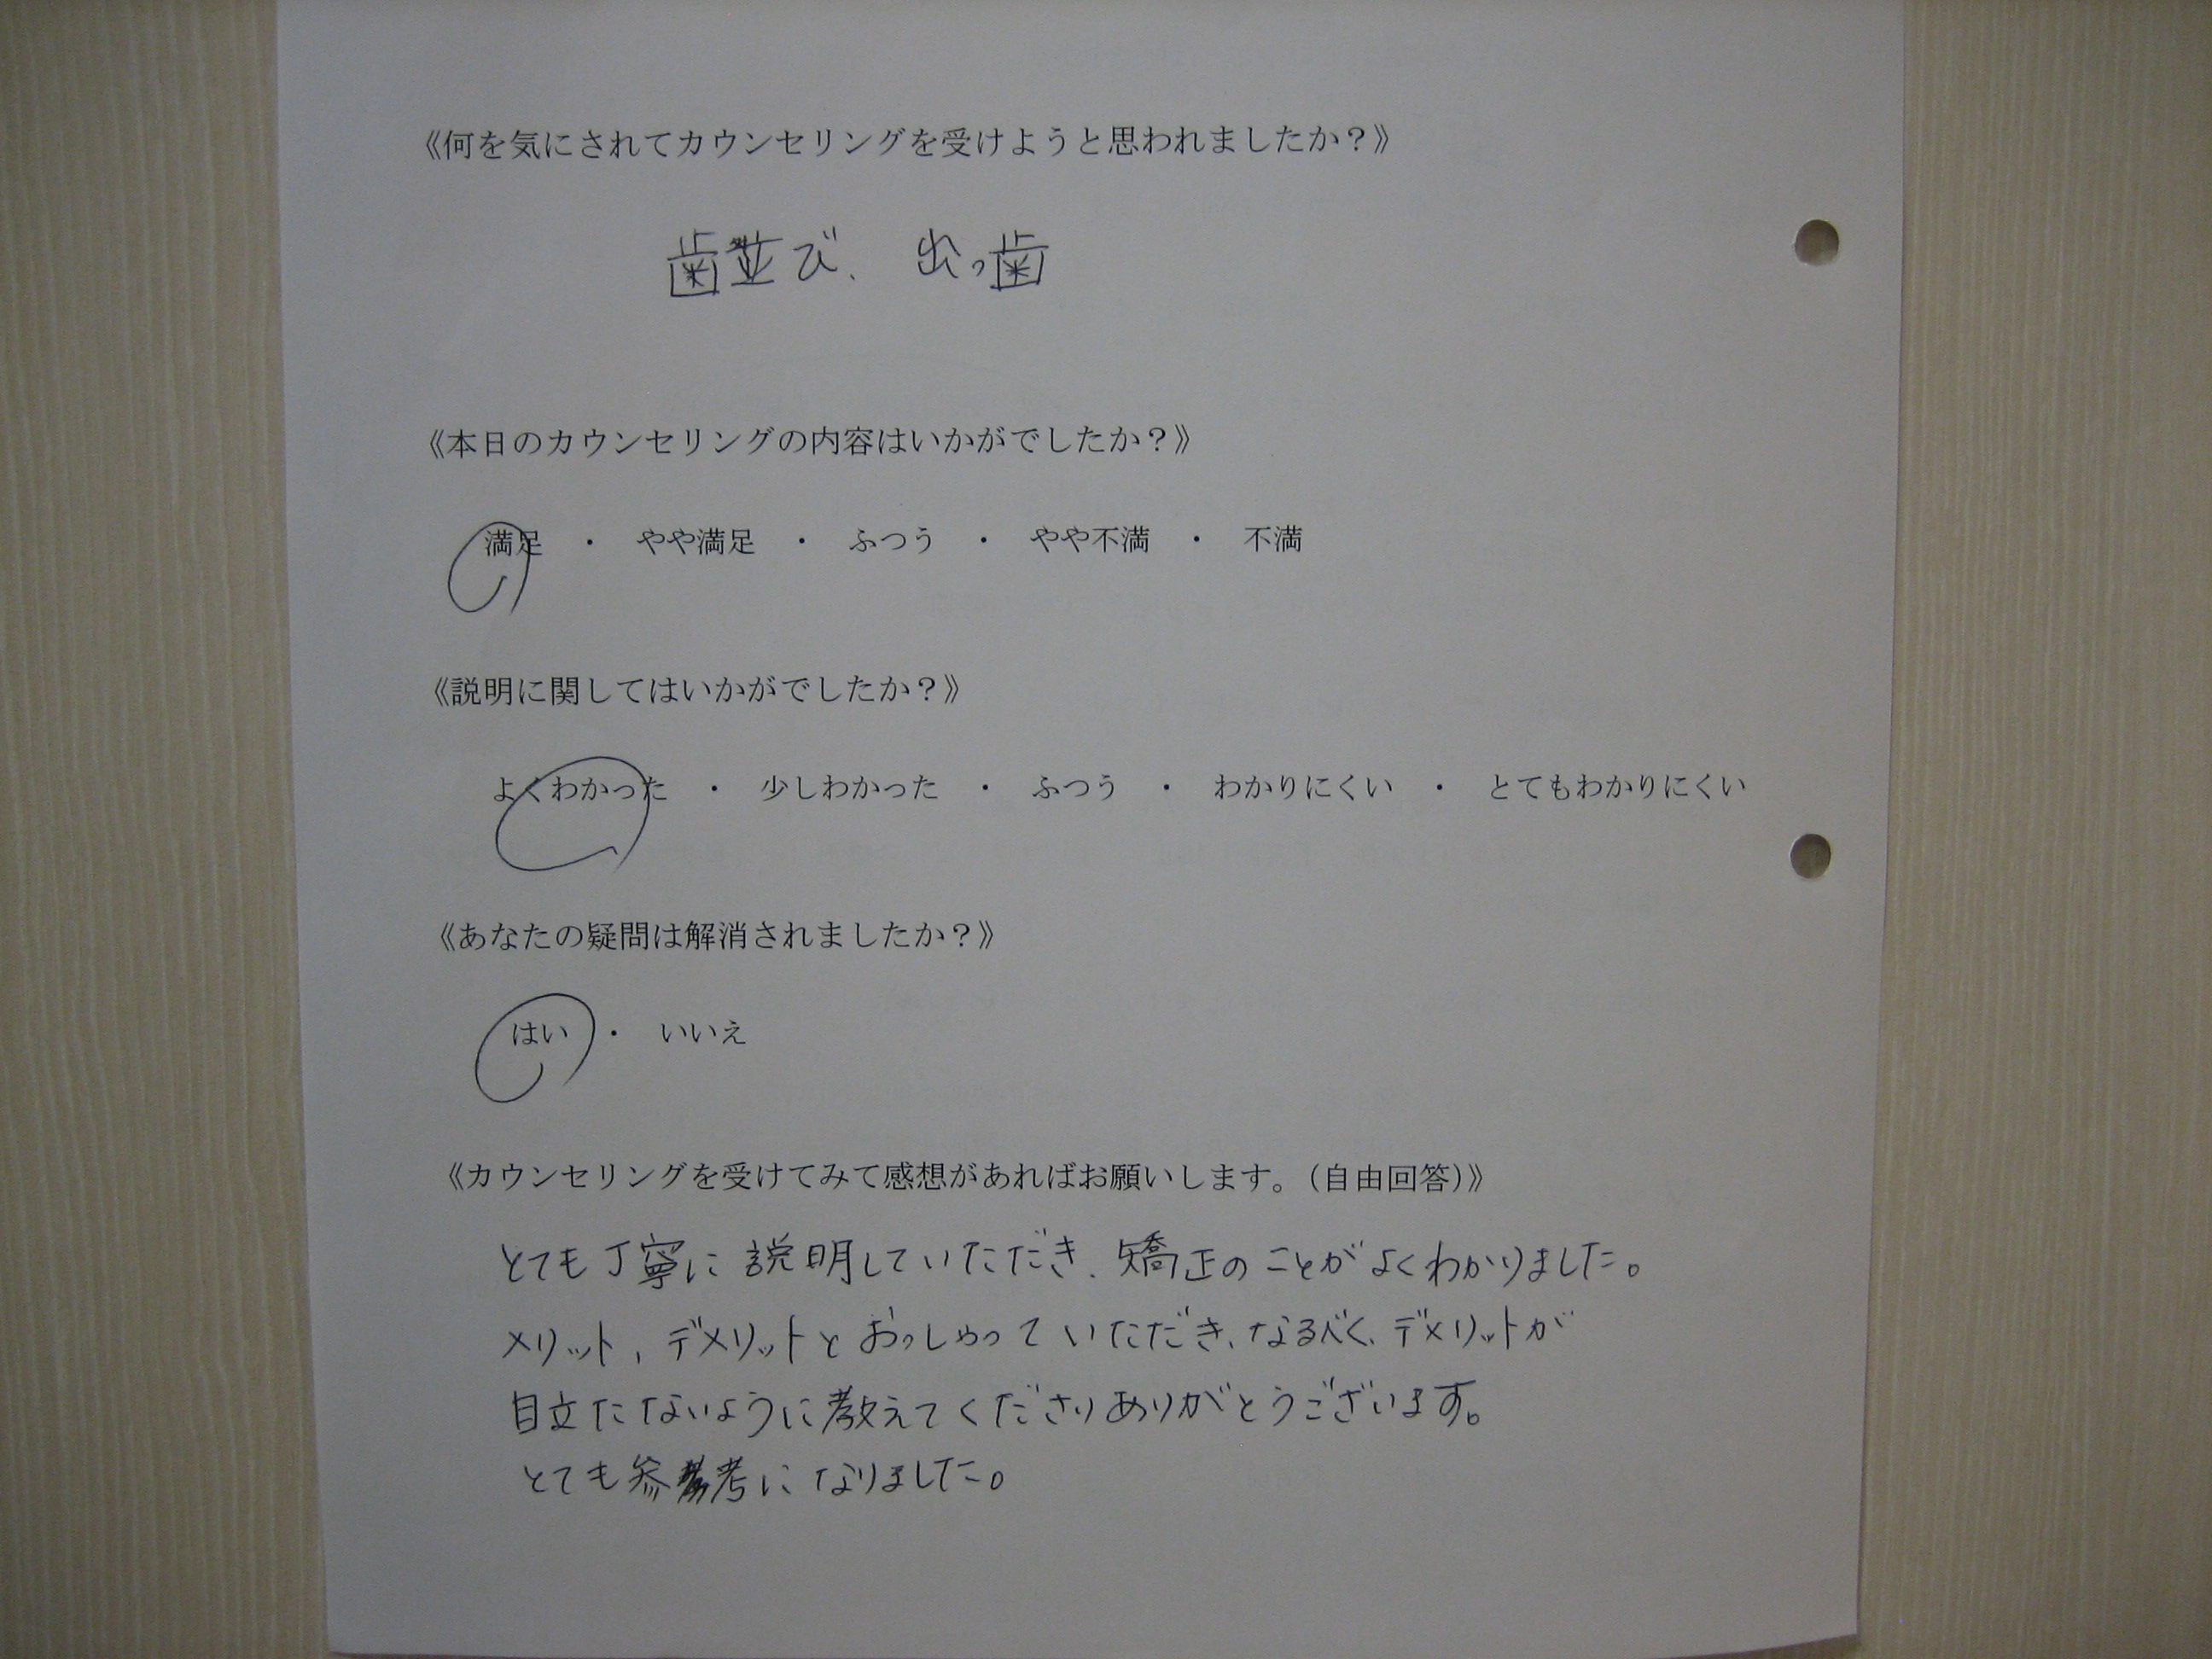 《何を気にされてカウンセリングを受けようと思われましたか？》
歯並び、出っ歯
《本日のカウンセリングの内容はいかがでしたか？》
満足　・　やや満足　・　ふつう　・　やや不満　・　不満
《説明に関してはいかがでしたか？》
よくわかった　・　少しわかった　・　ふつう　・　わかりにくい　・　とてもわかりにくい
《あなたの疑問は解消されましたか？》
はい　・　いいえ
《カウンセリングを受けてみて感想があればお願いします。（自由回答）》
とても丁寧に説明していただき、矯正のことがよくわかりました。
メリット、デメリットとおっしゃっていただき、なるべく、デメリットが
目立たないように教えてくださりありがとうございます。
とても参考になりました。